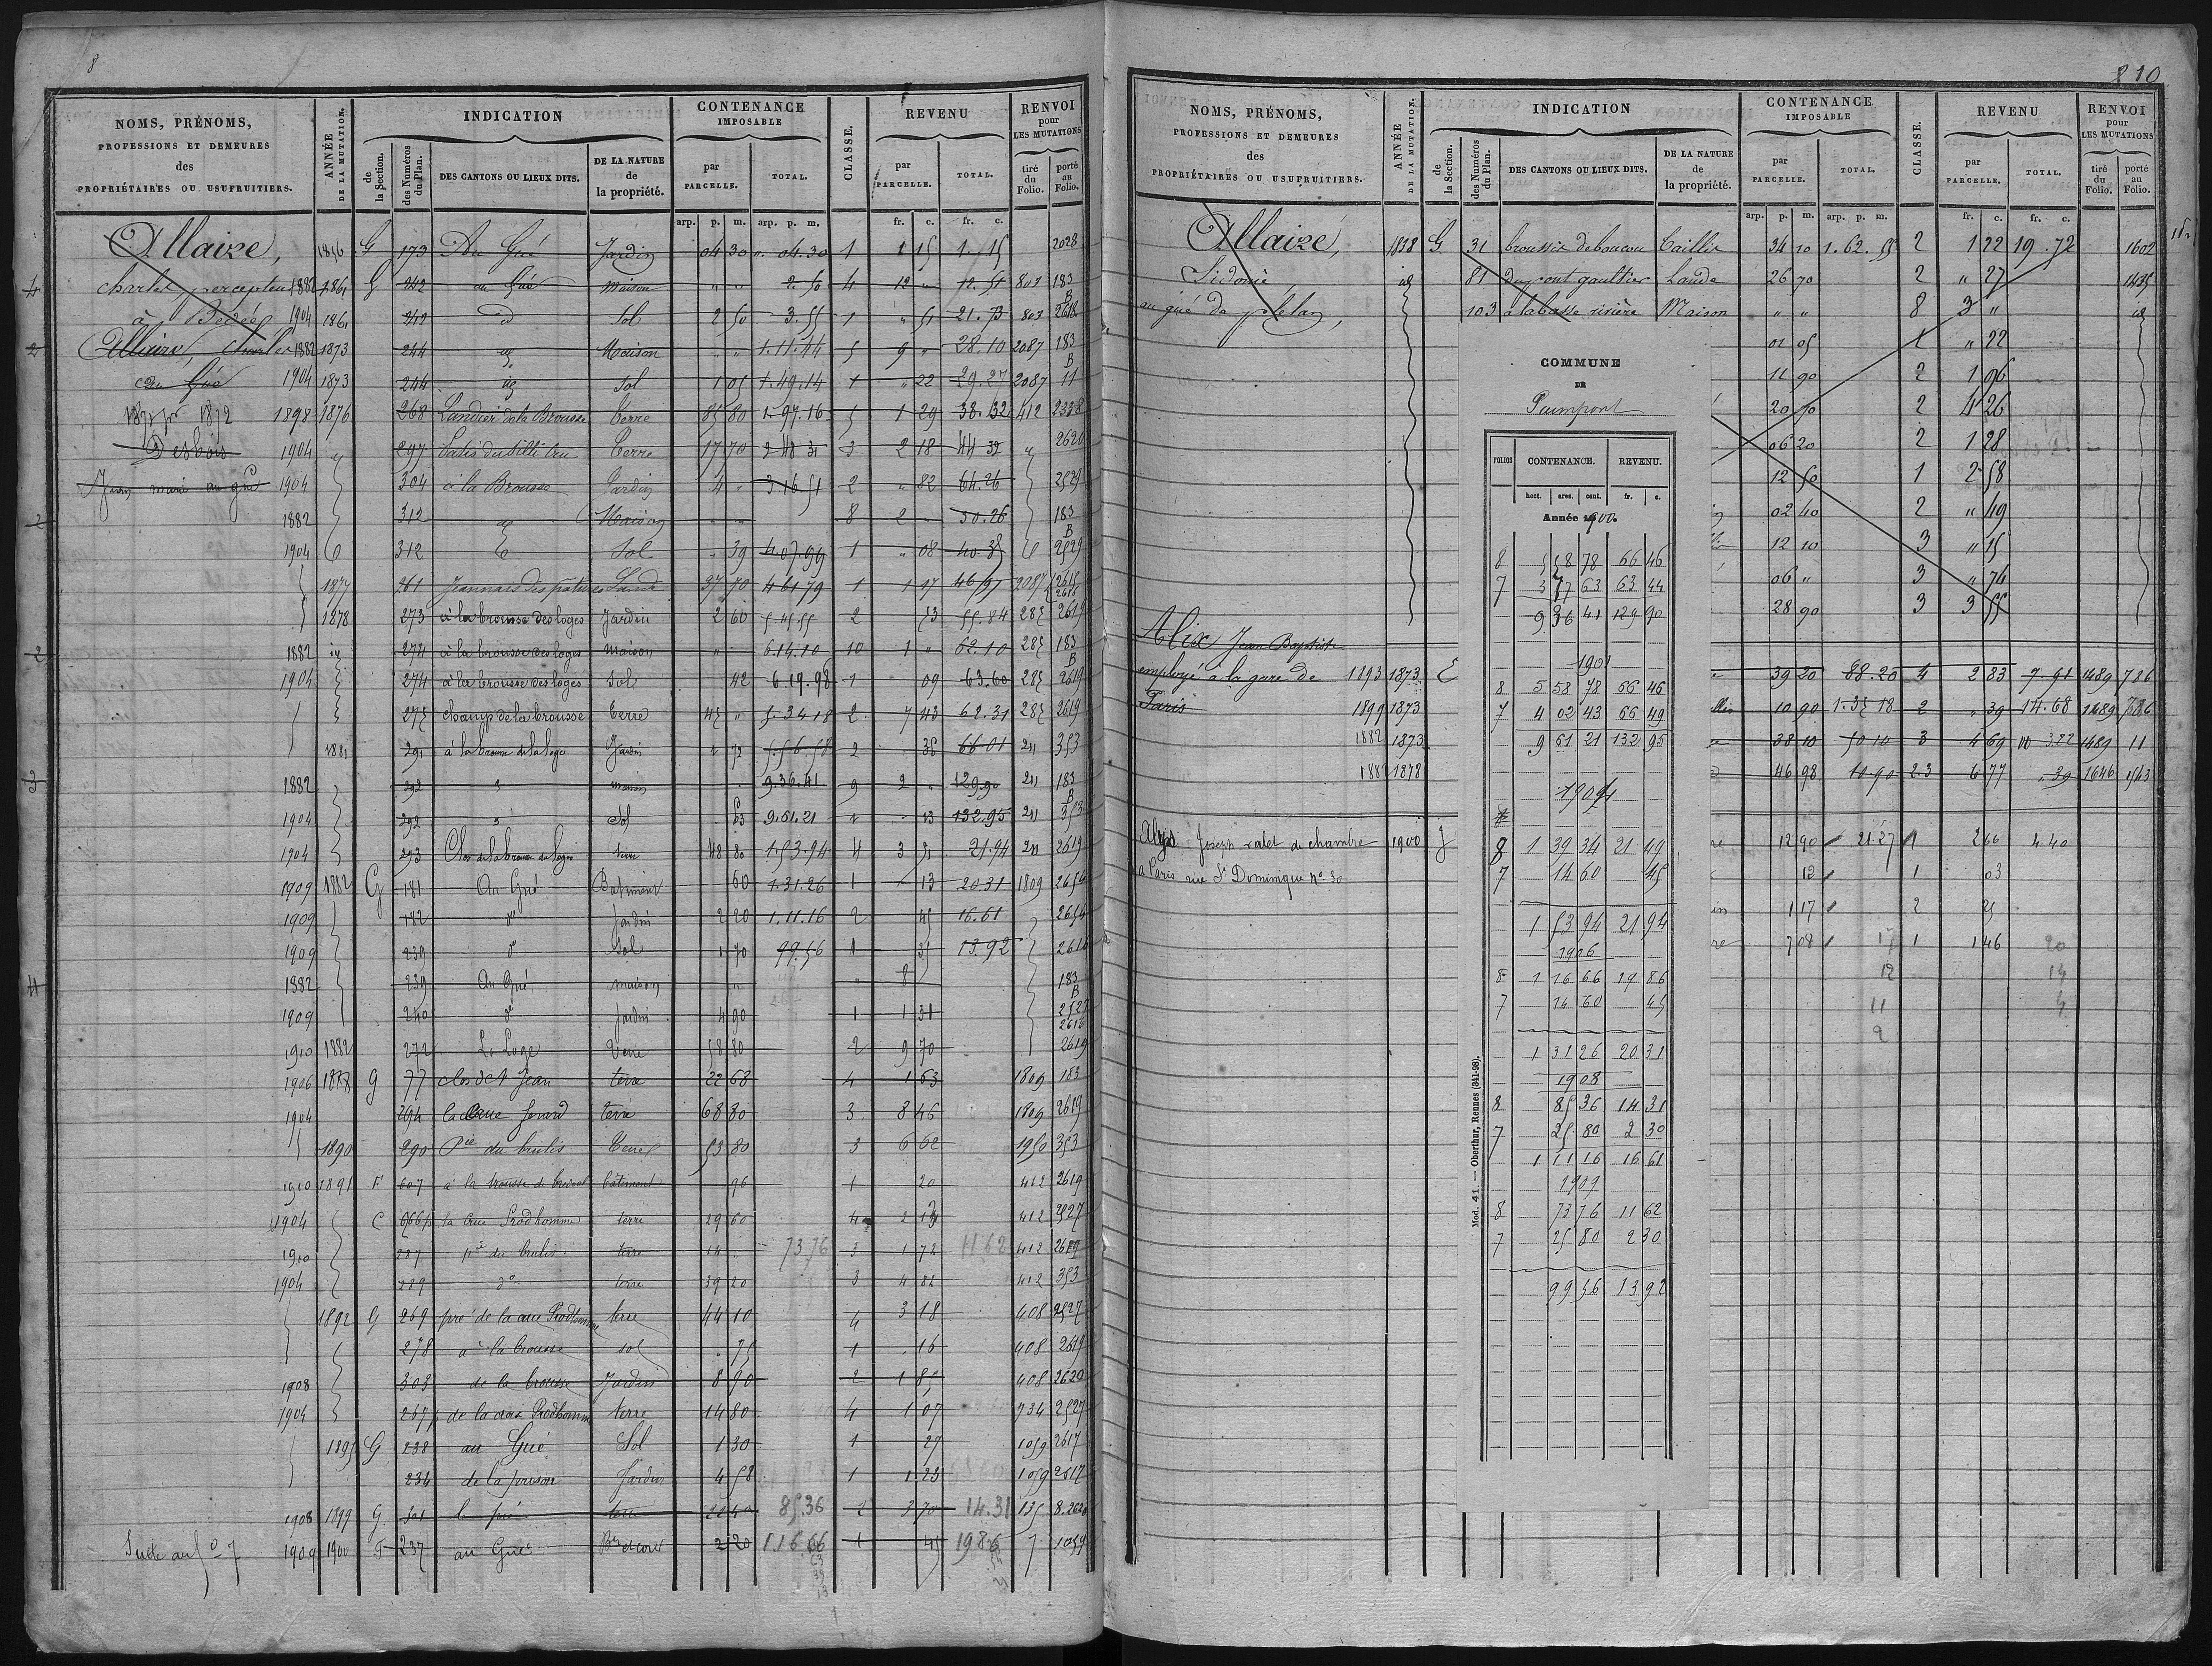 8
NOMS, PRÉNOMS,
PROFESSIONS ET DEMEURES
des
PROPRIÉTAIRES OU USUFRUITIERS.
ANNÉE
DE LA MUTATION.
INDICATION
de
la Section.
des Numéros
du Plan.
DES CANTONS OU LIEUX DITS.
DE LA NATURE
de
la propriété.
CONTENANCE
IMPOSABLE
par
PARCELLE.
TOTAL.
CLASSE.
REVENU
par
PARCELLE.
TOTAL.
RENVOI
pour
LES MUTATIONS
tiré
du
Folio.
porté
au
Folio.
arp. p. m. arp. p. m. fr. c. fr. c.
Allaize, 1856 G 173 Au Gué Jardin 04 30 04.30 1 1 15 1.15 2028
charles, percepteur 1882 1861 G 242 au Gué maison 4 12 803 183 B
à Bédée 1904 1861 242 d Sol 2 50 3.55 1 51 21.73 803 2618
Allaire, Charles 1882 1873 244 Maison 1.11.44 5 9 28.10 2087 183 B
au Gué 1904 1873 244 Sol 1 05 1.49.14 1 22 29.27 2087 11
1898 1876 268 Landier de la Brousse Terre 85 80 1.97.16 5 1 29 38.32 412 2328
Desbois 1904 297 Terre 17 70 2 48 31 3 2 18 44 32 2620
au gué 1904 304 à la Brousse Jardin 4 3 16 51 2 82 64.26 2529
1882 312 Maison 8 2 50.26 183 B
1904 312 Sol 39 4.07.99 1 08 40.35 2529
1877 261 Lande 37 70 4 61 79 1 1 17 46 51 2087 2615 2616
1878 273 à la brousse des loges Jardin 2 60 5.45.55 2 53 55.84 285 2619
1882 274 à la brousse des loges maison 6.14.10 10 1 62.10 285 183 B
1904 274 à la brousse des loges Sol 42 6.19.98 1 09 63.60 285 2619
275 champ de la brousse Terre 45 5.34 18 2 7 43 62.31 285 2619
1881 291 à la brousse de la loge Jardin 1 72 5.56.58 2 36 66 01 211 353
1882 292 maison 9.36.41 9 2 129.90 211 183 B
1904 292 Sol 63 9.61.21 1 13 132.95 211 353
1904 293 Clos de la brousse des loges terre 48 80 1.53.94 4 3 51 21.94 211 2619
1909 1882 G 181 Au Gué Batiment 60 1.31.26 1 13 20.31 1809 2654
1909 182 do Jardin 2 20 1.11.16 2 45 16.61 2654
1909 239 do Sol 1 70 99.56 1 35 13.92 2616
1882 239 Au Gué maison 8 183 B
1909 240 do Jardin 4 90 1 1 31 2527 2616
1910 1882 272 La Loge Terre 58 80 2 9 70 2619
1906 1888 G 77 clos de St Jean terre 22 68 4 1 63 1809 183
1904 294 terre 68 80 3 8 46 1809 2619
1890 290 Pce du brulis Terre 53 80 3 6 62 1950 353
1910 1891 F 607 à la brousse batiment 96 1 20 412 2619
1904 C 666p la Croix Prodhomme terre 29 60 4 2 13 412 2527
1910 287 pce du brulis terre 14 73 76 3 1 72 11 62 412 2619
1904 289 do terre 39 20 3 4 82 412 353
1892 G 269 pré de la croix Prodhomme terre 44 10 4 3 18 408 2527
278 a la brousse sol 75 1 16 408 2619
1908 303 de la brousse Jardin 8 90 2 1 85 408 2620
1904 267p de la croix Prodhomme terre 14 80 4 1 07 734 2527
1895 G 238 au Gué Sol 1 30 1 27 1059 2617
234 de la prison Jardin 4 58 1 1.23 1059 2617
1908 1899 G 301 le pré terre 22 40 85 36 2 3 70 14.31 135 8.2620
Suite au fo 7 1909 1900 F 237 au Gué Bt et cour 2 20 1.16 66 1 45 19 86 7 1059
8 10
NOMS, PRÉNOMS,
PROFESSIONS ET DEMEURES
des
PROPRIÉTAIRES OU USUFRUITIERS.
ANNÉE
DE LA MUTATION.
INDICATION
de
la Section.
des Numéros
du Plan.
DES CANTONS OU LIEUX DITS.
DE LA NATURE
de
la propriété.
CONTENANCE
IMPOSABLE
par
PARCELLE.
TOTAL.
CLASSE.
REVENU
par
PARCELLE.
TOTAL.
RENVOI
pour
LES MUTATIONS
tiré
du
Folio.
porté
au
Folio.
arp. p. m. arp. p. m. fr. c. fr. c.
Allaize, 1838 G 31 broussis de boucou Taillis 34 10 1.62.55 2 1 22 19.72 1602
Sidonie, id 81 du pont gaultier Lande 26 70 2 27 1435
au gué de plélan, 103 à la basse rivière Maison 8 3 id
01 05 1 22
11 90 2 1 96
20 70 2 4 26
06 20 2 1 28
12 50 1 2 58
02 40 2 49
12 10 3 15
06 3 74
28 90 3 3 55
Alix Jean Baptiste
employé à la gare de 1893 1873 E 39 20 88.20 4 2 83 7.91 1489 786
Paris 1899 1873 10 90 1.35 18 2 39 14.68 1489 786
1882 1873 38 10 50 10 3 4 69 3.22 1489 11
1882 1878 46 98 10.90 2.3 6 77 39 1646 1543
Alys Joseph valet de chambre 1900 J 12 90 21.27 1 2 66 4 40
a Paris rue St Dominique No 30 12 1 03
1 17 2 25
7 08 1 1 46
COMMUNE
DE
Paimpont
FOLIOS CONTENANCE. REVENU.
hect. ares. cent. fr. c.
Année 1900
8 5 58 78 66 46
7 3 77 63 63 44
9 36 41 129 90
1901
8 5 58 78 66 46
7 4 02 43 66 49
9 61 21 132 95
1904
8 1 39 34 21 49
7 14 60 45
1 53 94 21 94
1906
8 1 16 66 19 86
7 14 60 45
1 31 26 20 31
1908
8 85 36 14 31
7 25 80 2 30
1 11 16 16 61
1909
8 73 76 11 62
7 25 80 2 30
99 56 13 92
Mod. 41. — Oberthur, Rennes (341-98).